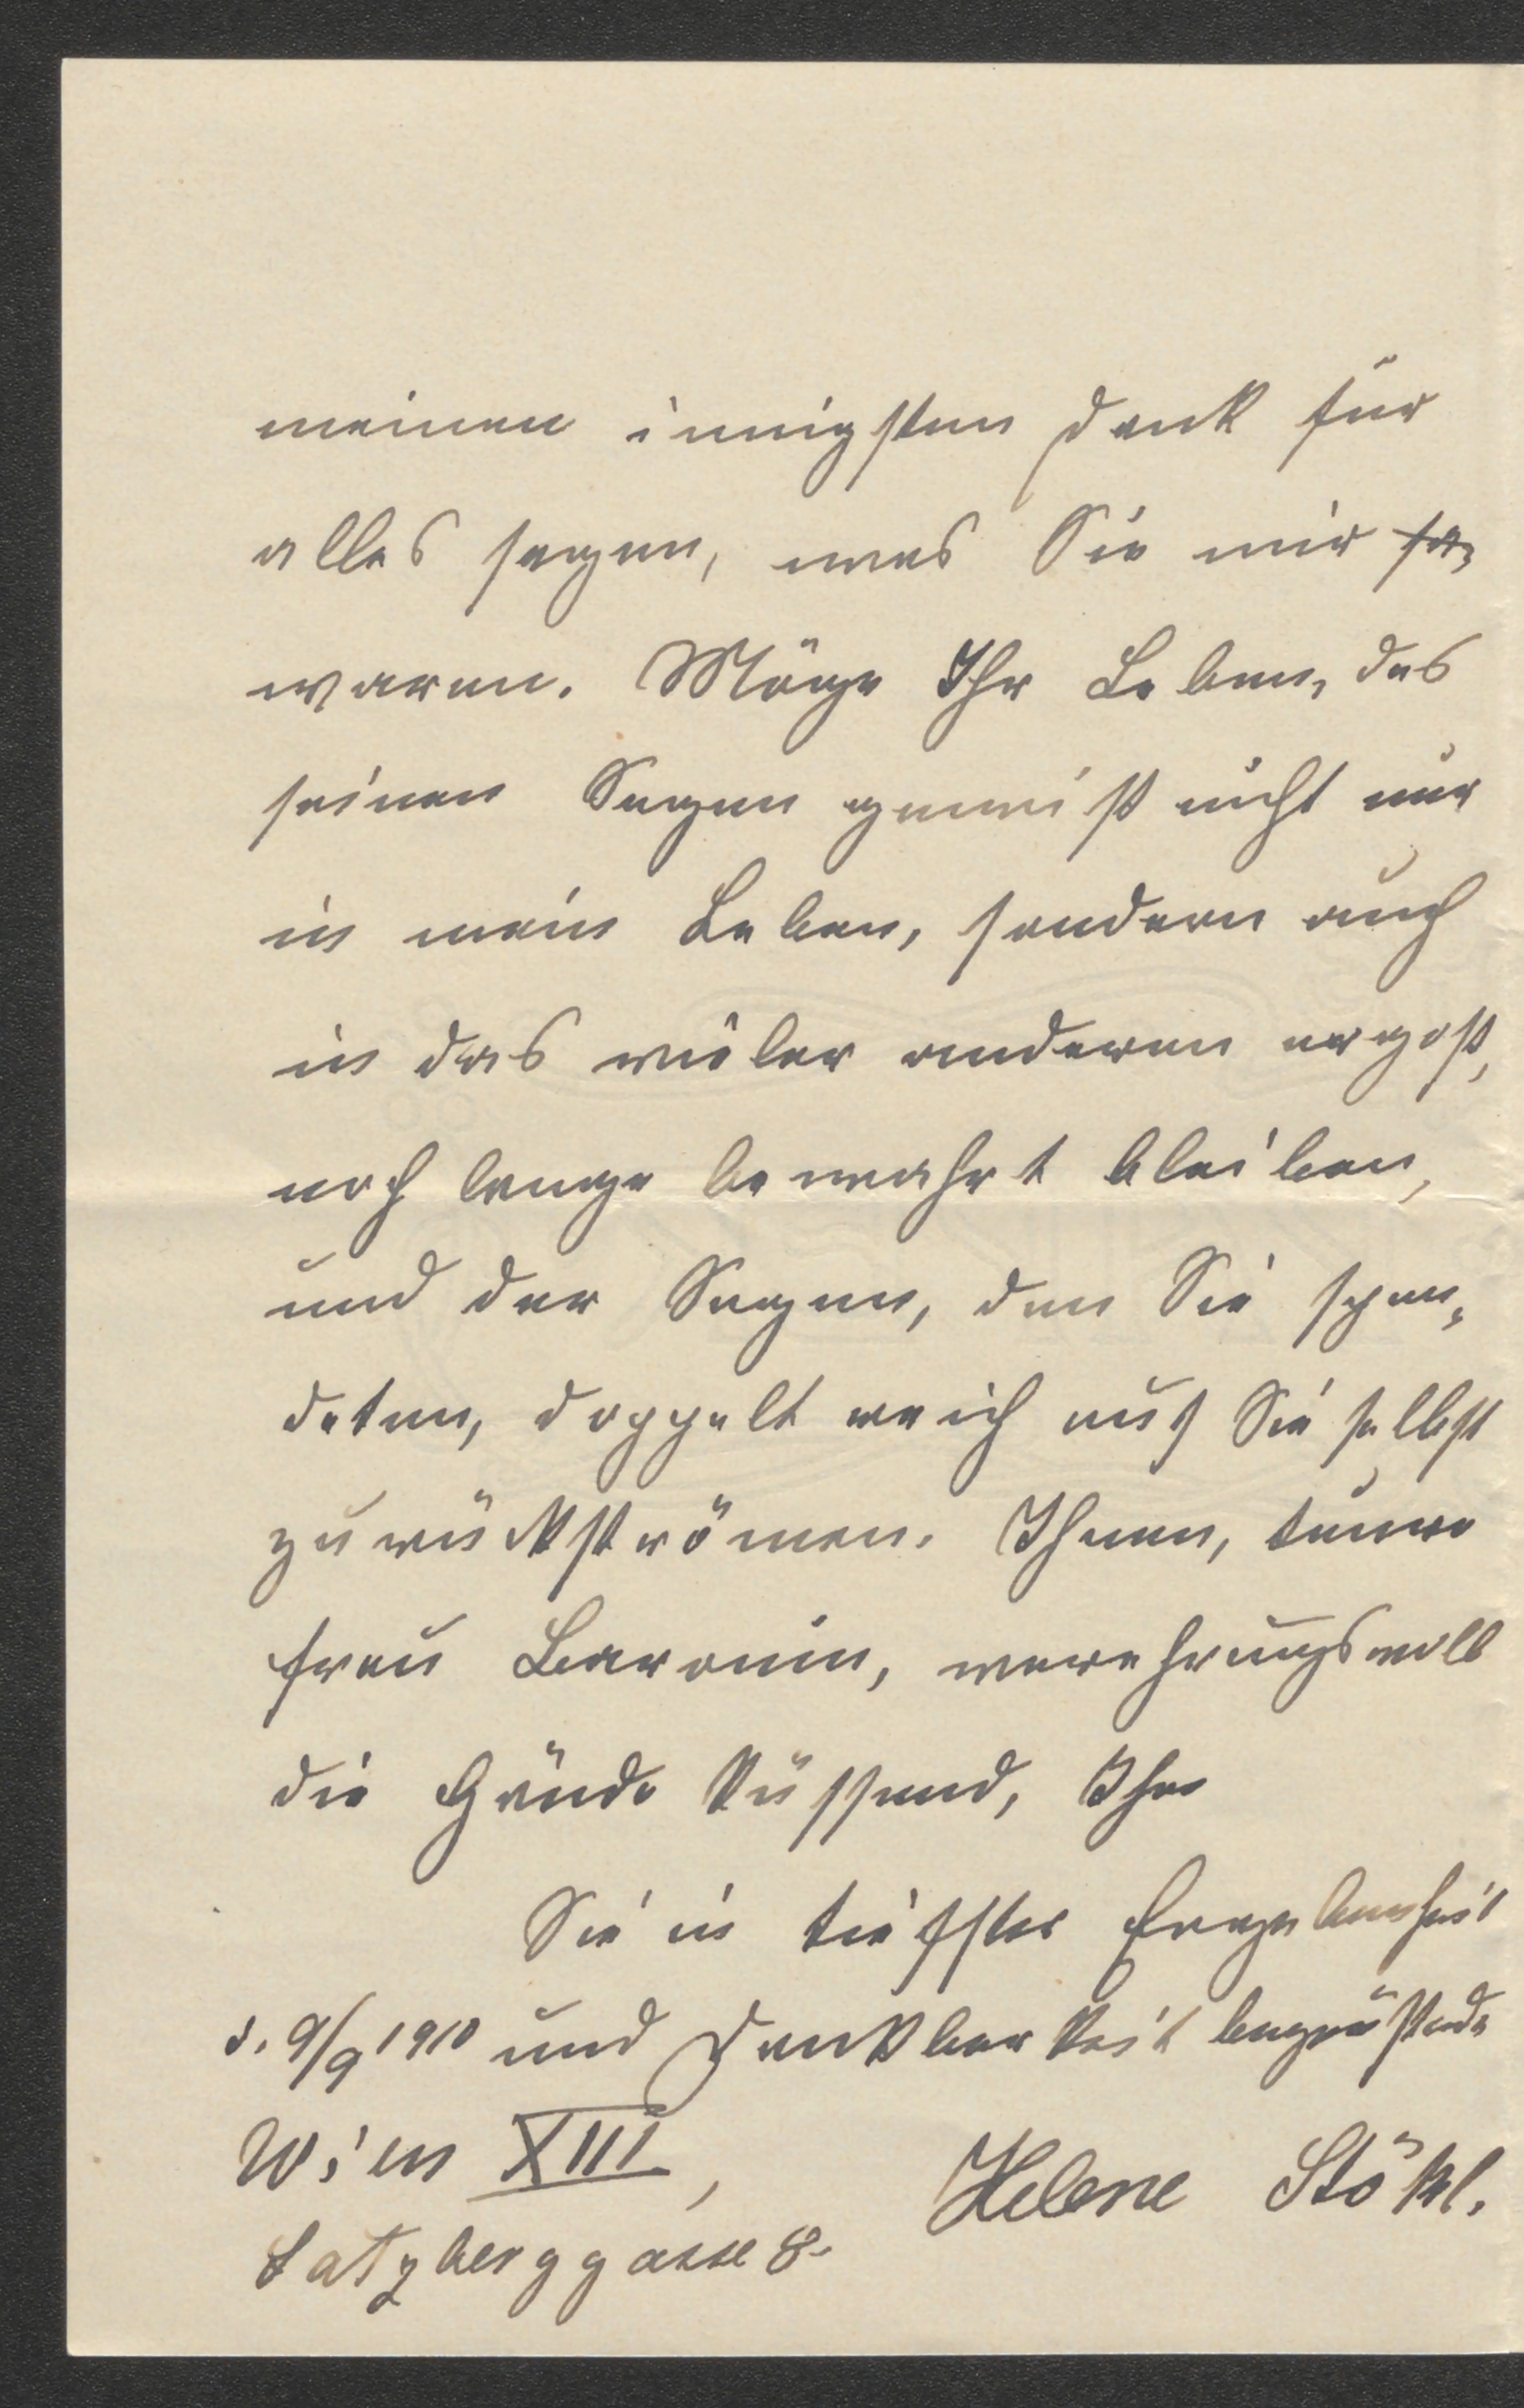 meinen innigsten Dank für
alles sagen, was Sie mir
waren. Möge Ihr Leben, das
seinen Segen gewiß nicht nur
in mein Leben, sondern auch
in das vieler anderen ergoß,
noch lange bewahrt bleiben,
und der Segen, den Sie spen-
deten, doppelt reich auf Sie selbst
zurückströmen. Ihnen, teure
Frau Baronin, verehrungsvoll
die Hände küssend, Ihre
Sie in tiefster Ergebenheit
d. 9/9 1910 und Dankbarkeit begrüßende
Wien XIII,
Helene Stökl.
Satzberggasse 8.